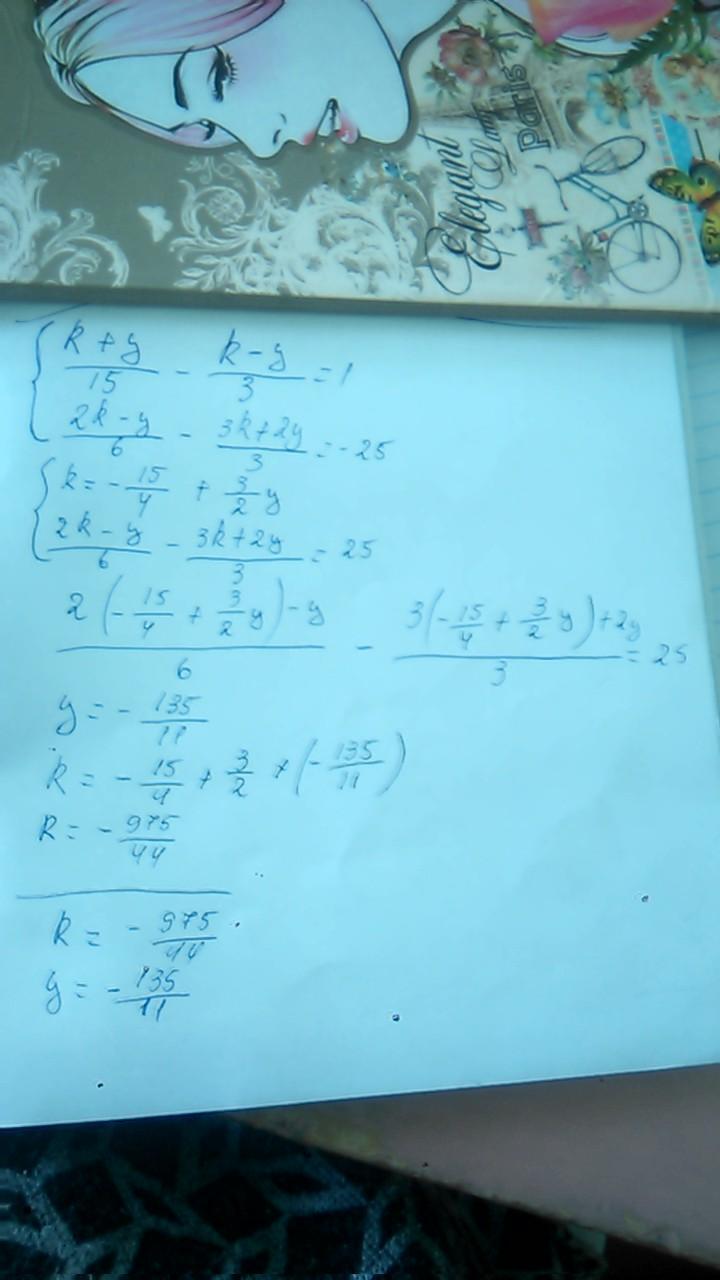 Elegant
Lady
Paris
{ (k + y)/15 - (k - y)/3 = 1
(2k - y)/6 - (3k + 2y)/3 = -25
{ k = - 15/4 + 3/2 y
(2k - y)/6 - (3k + 2y)/3 = 25
(2(- 15/4 + 3/2 y) - y)/6 - (3(- 15/4 + 3/2 y) + 2y)/3 = 25
y = - 135/11
k = - 15/4 + 3/2 × (- 135/11)
k = - 975/44
k = - 975/44
y = - 135/11